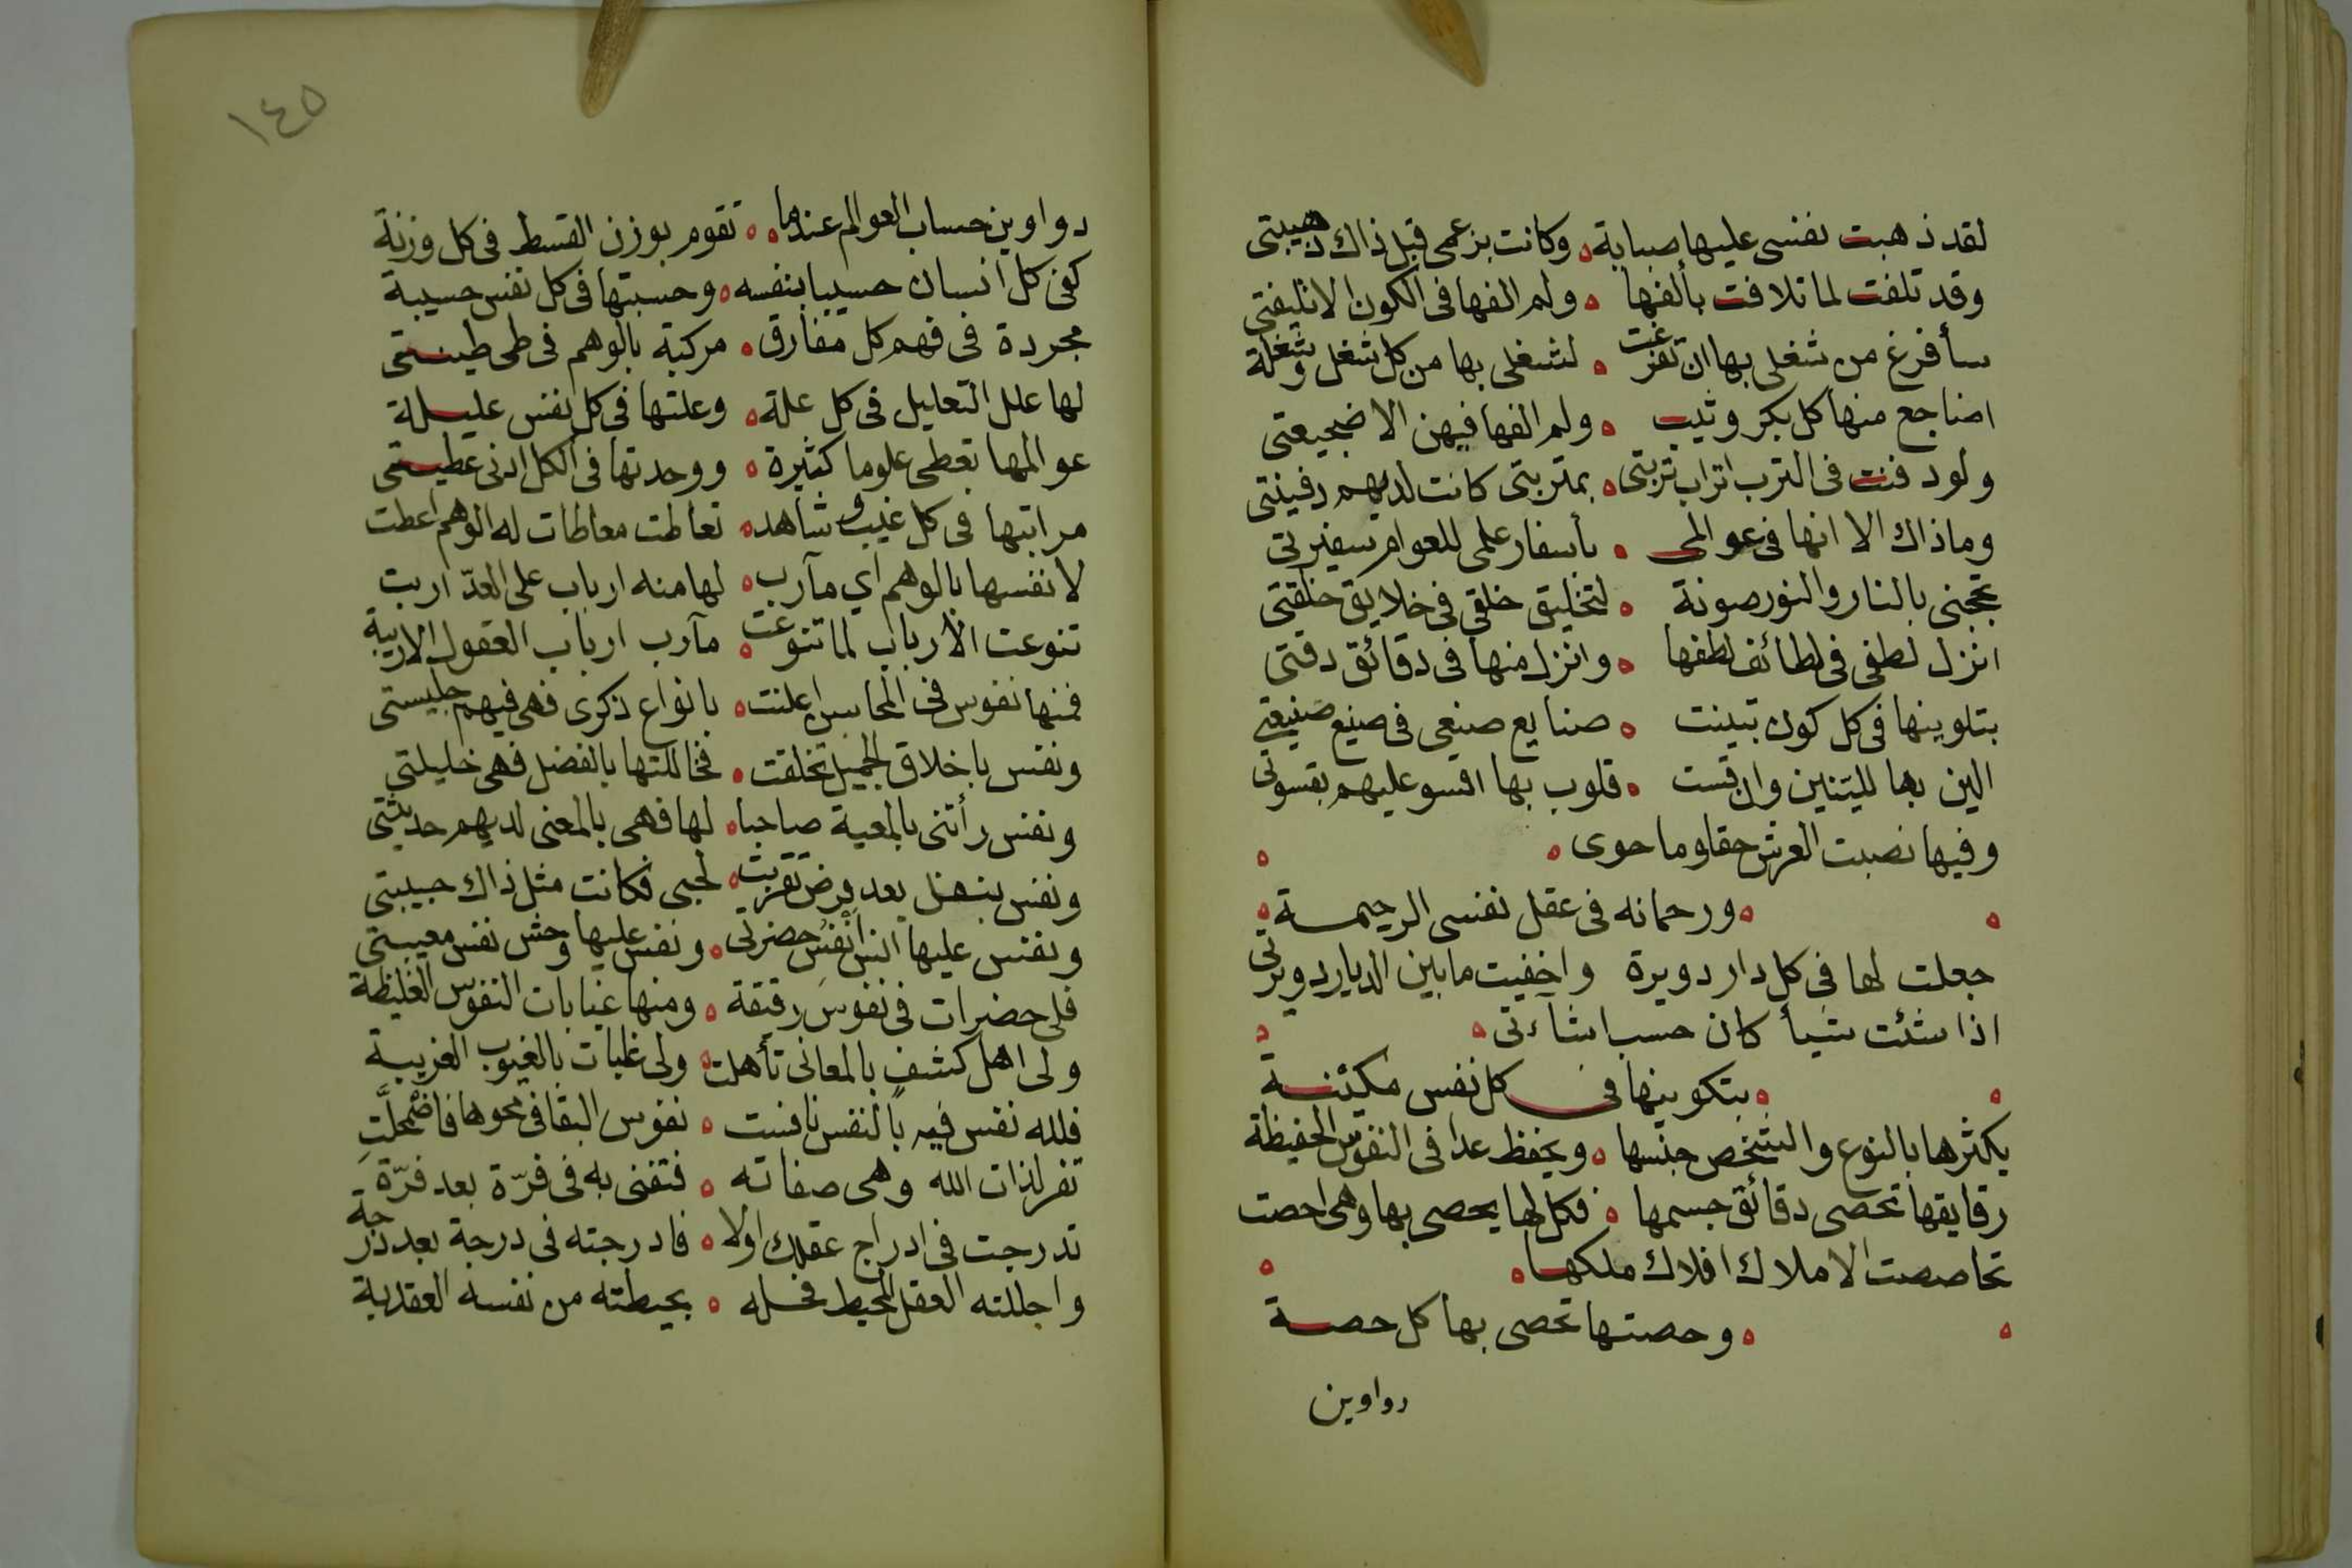 لقد ذهبت نفسى عليها صبابة ه وكانت بزعمى قبل ذاك ذهيبتى
وقد تلفت لما تلافت بألفها ه ولم الفها فى الكون الا تليفتى
سأفرغ من شغلى بها ان تفرغت ه لشغلى بها من كل شغل وشغلة
اضاجع منها كل بكر وثيب ه ولم الفها فيهن الا ضجيعتى
ولو دفنت فى الترب اتراب تربتى ه بمتربتى كانت لديهم دفينتى
وما ذاك الا انها فى عوالمى ه بأسفار علمى للعوالم سفيرتى
تحجبنى بالنار والنور صونة ه لتخليق خلقى فى خلايق خلقتى
انزل لطفى فى لطائف لطفها ه وانزل منها فى دقائق دقتى
بتلوينها فى كل كون تبينت ه صنايع صنعى فى صنيع صنيعتى
الين بها لليّنين وان قست ه قلوب بها اقسو عليهم بقسوتى
وفيها نصبت العرش حقا وما حوى ه ه
ه ه ورحمانه فى عقل نفسى الرحيمة ه
جعلت لها فى كل دار دويرة واخفيت مابين الديار دويرتى
اذا شئت شيأ كان حسب اشاءتى ه ه
ه ه بتكوينها فى كل نفس مكينة
يكثرها بالنوع والشخص جنسها ه ويحفظ عدا فى النفوس الحفيظة
رقايقها تحصى دقائق جسمها ه فكل لها يحصى بها وهى احصت
تحاصصت الاملاك افلاك ملكها ه ه
ه ه وحصتها تحصى بها كل حصة
دواوين
١٤٥
دواوين حساب العوالم عندها ه ه تقوم بوزن القسط فى كل وزنة
كفى كل انسان حسيبا بنفسه ه وحسبتها فى كل نفس حسيبة
مجردة فى فهم كل مفارق ه مركبة بالوهم فى طى طينتى
لها علل التعليل فى كل علة ه وعلتها فى كل نفس عليلة
عوالمها تعطى علوما كثيرة ه ووحدتها فى الكل ادنى عطيتى
مراتبها فى كل غيب وشاهد ه تعاطت معاطات له الوهم اعطت
لانفسها بالوهم اي مآرب ه لها منه ارباب على العدّ اربت
تنوعت الارباب لما تنوعت ه مآرب ارباب العقول الاريبة
فمنها نفوس فى المجالس اعلنت ه بانواع ذكرى فهى فيهم جليستى
ونفس باخلاق الجميل تخلقت ه فخاللتها بالفضل فهى خليلتى
ونفس رأتنى بالمعية صاحبا ه لها فهى بالمعنى لديهم حديثتى
ونفس بنفل بعد فرض تقربت ه لحبى فكانت مثل ذاك حبيبتى
ونفس عليها انس انفس حضرتى ه ونفس عليها وحش نفس مغيبتى
فلى حضرات فى نفوس رقيقة ه ومنها غيابات النفوس الغليظة
ولى اهل كشف بالمعانى تأهلت ه ولى غائبات بالغيوب الغريبة
فلله نفس فيه بالنفس نافست ه نفوس البقا فى محوها فاضمحلّتِ
تفر لذات الله وهى صفاته ه فتفنى به فى فرّة بعد فرّة
تدرجت فى ادراج عقلك اولا ه فادرجته فى درجة بعد درجة
واجللته العقل المحيط فحله ه بحيطته من نفسه العقدية